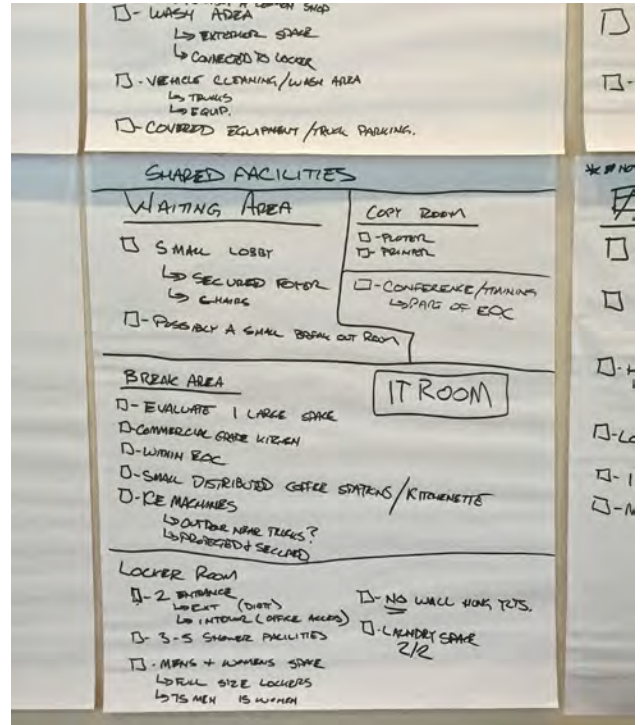 SHOP
☐- WASH AREA
↳ EXTERIOR SPACE
↳ CONNECTED TO LOCKER
☐- VEHICLE CLEANING/WASH AREA
↳ TRUCKS
↳ EQUIP.
☐- COVERED EQUIPMENT/TRUCK PARKING.
SHARED FACILITIES
WAITING AREA
☐ SMALL LOBBY
↳ SECURED FOYER
↳ CHAIRS
☐- POSSIBLY A SMALL BREAK OUT ROOM
COPY ROOM
☐-PLOTER
☐- PRINTER
☐-CONFERENCE/TRAINING
↳PART OF EOC
BREAK AREA
☐- EVALUATE 1 LARGE SPACE
☐-COMMERCIAL GRADE KITCHEN
☐-WITHIN EOC
☐-SMALL DISTRIBUTED COFFEE STATIONS/KITCHENETTE
☐-ICE MACHINES
↳OUTDOOR NEAR TRUCKS?
↳PROTECTED & SECURED
IT ROOM
LOCKER ROOM
☐-2 ENTRANCE
↳EXT (DIRTY)
↳ INTERIOR (OFFICE ACCESS)
☐- 3-5 SHOWER FACILITIES
☐- MENS + WOMENS SPACE
↳FULL SIZE LOCKERS
↳75 MEN 15 WOMEN
☐-NO WALL HUNG TLTS.
☐-LAUNDRY SPACE
2/2